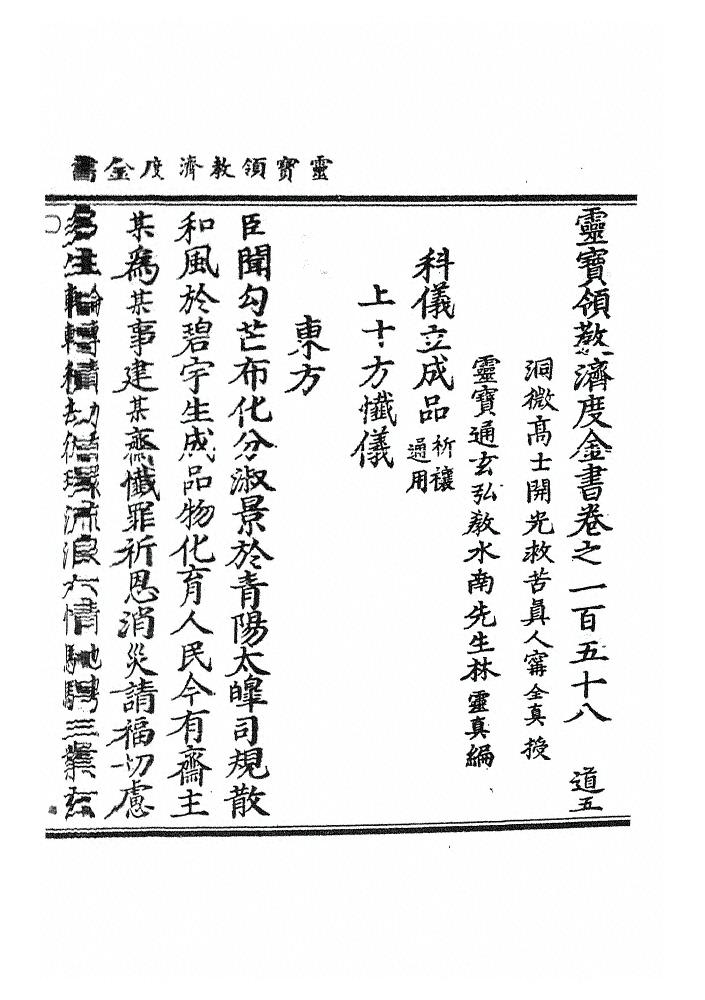 靈寶領教濟度金書
靈寶領教濟度金書卷之一百五十八　道五
洞微高士開光救苦眞人甯全真授
靈寶通玄弘教水南先生林靈真編
科儀立成品祈禳通用
上十方懺儀
東方
臣聞勾芒布化分淑景於青陽太皡司規散
和風於碧宇生成品物化育人民今有齋主
某爲某事建某齋懺罪祈恩消災請福切慮
生輪轉積劫循環流浪六情馳騁三業